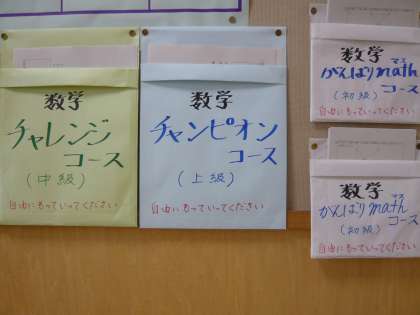 数学
チャレンジ
コース
(中級)
自由にもっていってください
数学
チャンピオン
コース
(上級)
自由にもっていってください
数学
マス
がんばりmath
コース
(初級)
自由にもっていってください
数学
マス
がんばりmath
コース
(初級)
自由にもっていってください